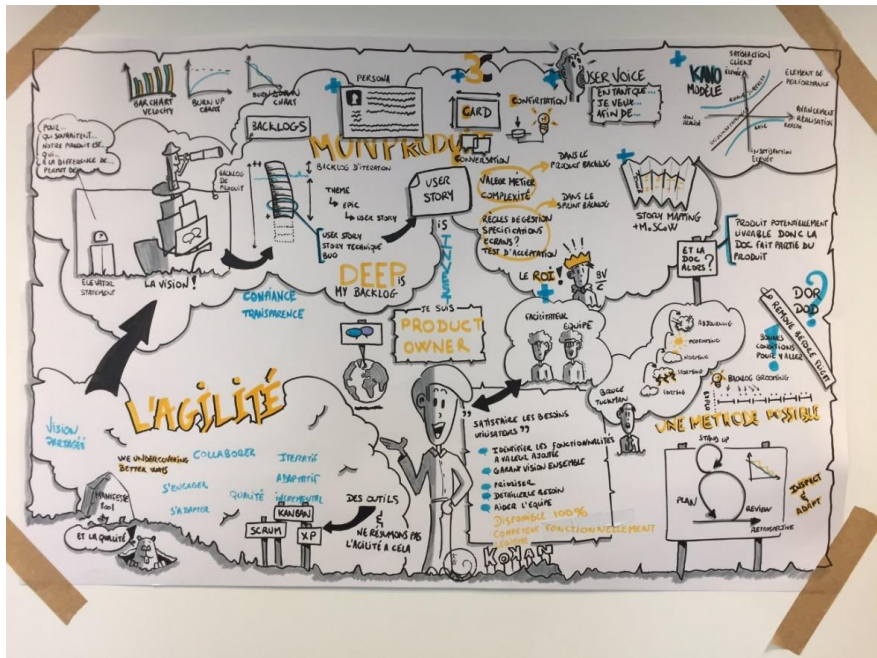 BAR CHART
VELOCITY
BURN UP
CHART
BURN DOWN
CHART
BACKLOGS
PERSONA
3C
CARD
CONFIRMATION
CONVERSATION
USER VOICE
EN TANT QUE...
JE VEUX...
AFIN DE...
KANO
MODÈLE
SATISFACTION
CLIENT
ÉLEVÉE
ELEMENT DE
PERFORMANCE
AVANCEMENT
RÉALISATION
NON RÉALISÉ
BASIC
POUR...
QUI SOUHAITENT...
NOTRE PRODUIT EST...
QUI...
À LA DIFFÉRENCE DE...
PERMET DE...
ELEVATOR
STATEMENT
LA VISION!
MON PRODUIT
BACKLOG
DE
PRODUIT
BACKLOG D'ITERATION
THEME
EPIC
USER STORY
USER STORY
STORY TECHNIQUE
BUG
USER
STORY
IS
INVEST
DEEP IS
MY BACKLOG
CONFIANCE
TRANSPARENCE
VALEUR MÉTIER
COMPLEXITÉ
DANS LE
PRODUCT BACKLOG
RÈGLES DE GESTION
SPÉCIFICATIONS
ECRANS?
TEST D'ACCEPTATION
DANS LE
SPRINT BACKLOG
STORY MAPPING
+ MoSCoW
ET LA
DOC
ALORS?
PRODUIT POTENTIELLEMENT
LIVRABLE DONC LA
DOC FAIT PARTIE DU
PRODUIT
LE ROI!
BV
C
JE SUIS
PRODUCT
OWNER
FACILITATEUR
EQUIPE
ADJOURNING
PERFORMING
NORMING
STORMING
FORMING
BRUCE
TUCKMAN
DOR
DOD
BONNES
CONDITIONS
POUR Y ALLER
REMOVE BEFORE FLIGHT
BACKLOG GROOMING
UNE METHODE POSSIBLE
STAND UP
PLAN
REVIEW
RETROSPECTIVE
INSPECT
&
ADAPT
L'AGILITÉ
VISION
PARTAGÉE
WE UNDERCOVERING
BETTER WAYS
COLLABORER
S'ENGAGER
S'ADAPTER
QUALITÉ
ITERATIF
ADAPTATIF
INCREMENTAL
MANIFESTE
2001
ET LA QUALITÉ
SCRUM
KANBAN
XP
DES OUTILS
NE RÉSUMONS PAS
L'AGILITÉ A CELA
SATISFAIRE LES BESOINS
UTILISATEURS "
IDENTIFIER LES FONCTIONNALITÉS
A VALEUR AJOUTÉE
GARANT VISION ENSEMBLE
PRIORISER
DETAILLER LE BESOIN
AIDER L'ÉQUIPE
DISPONIBLE 100%
COMPÉTENT FONCTIONNELLEMENT
LÉGITIME
KONAN